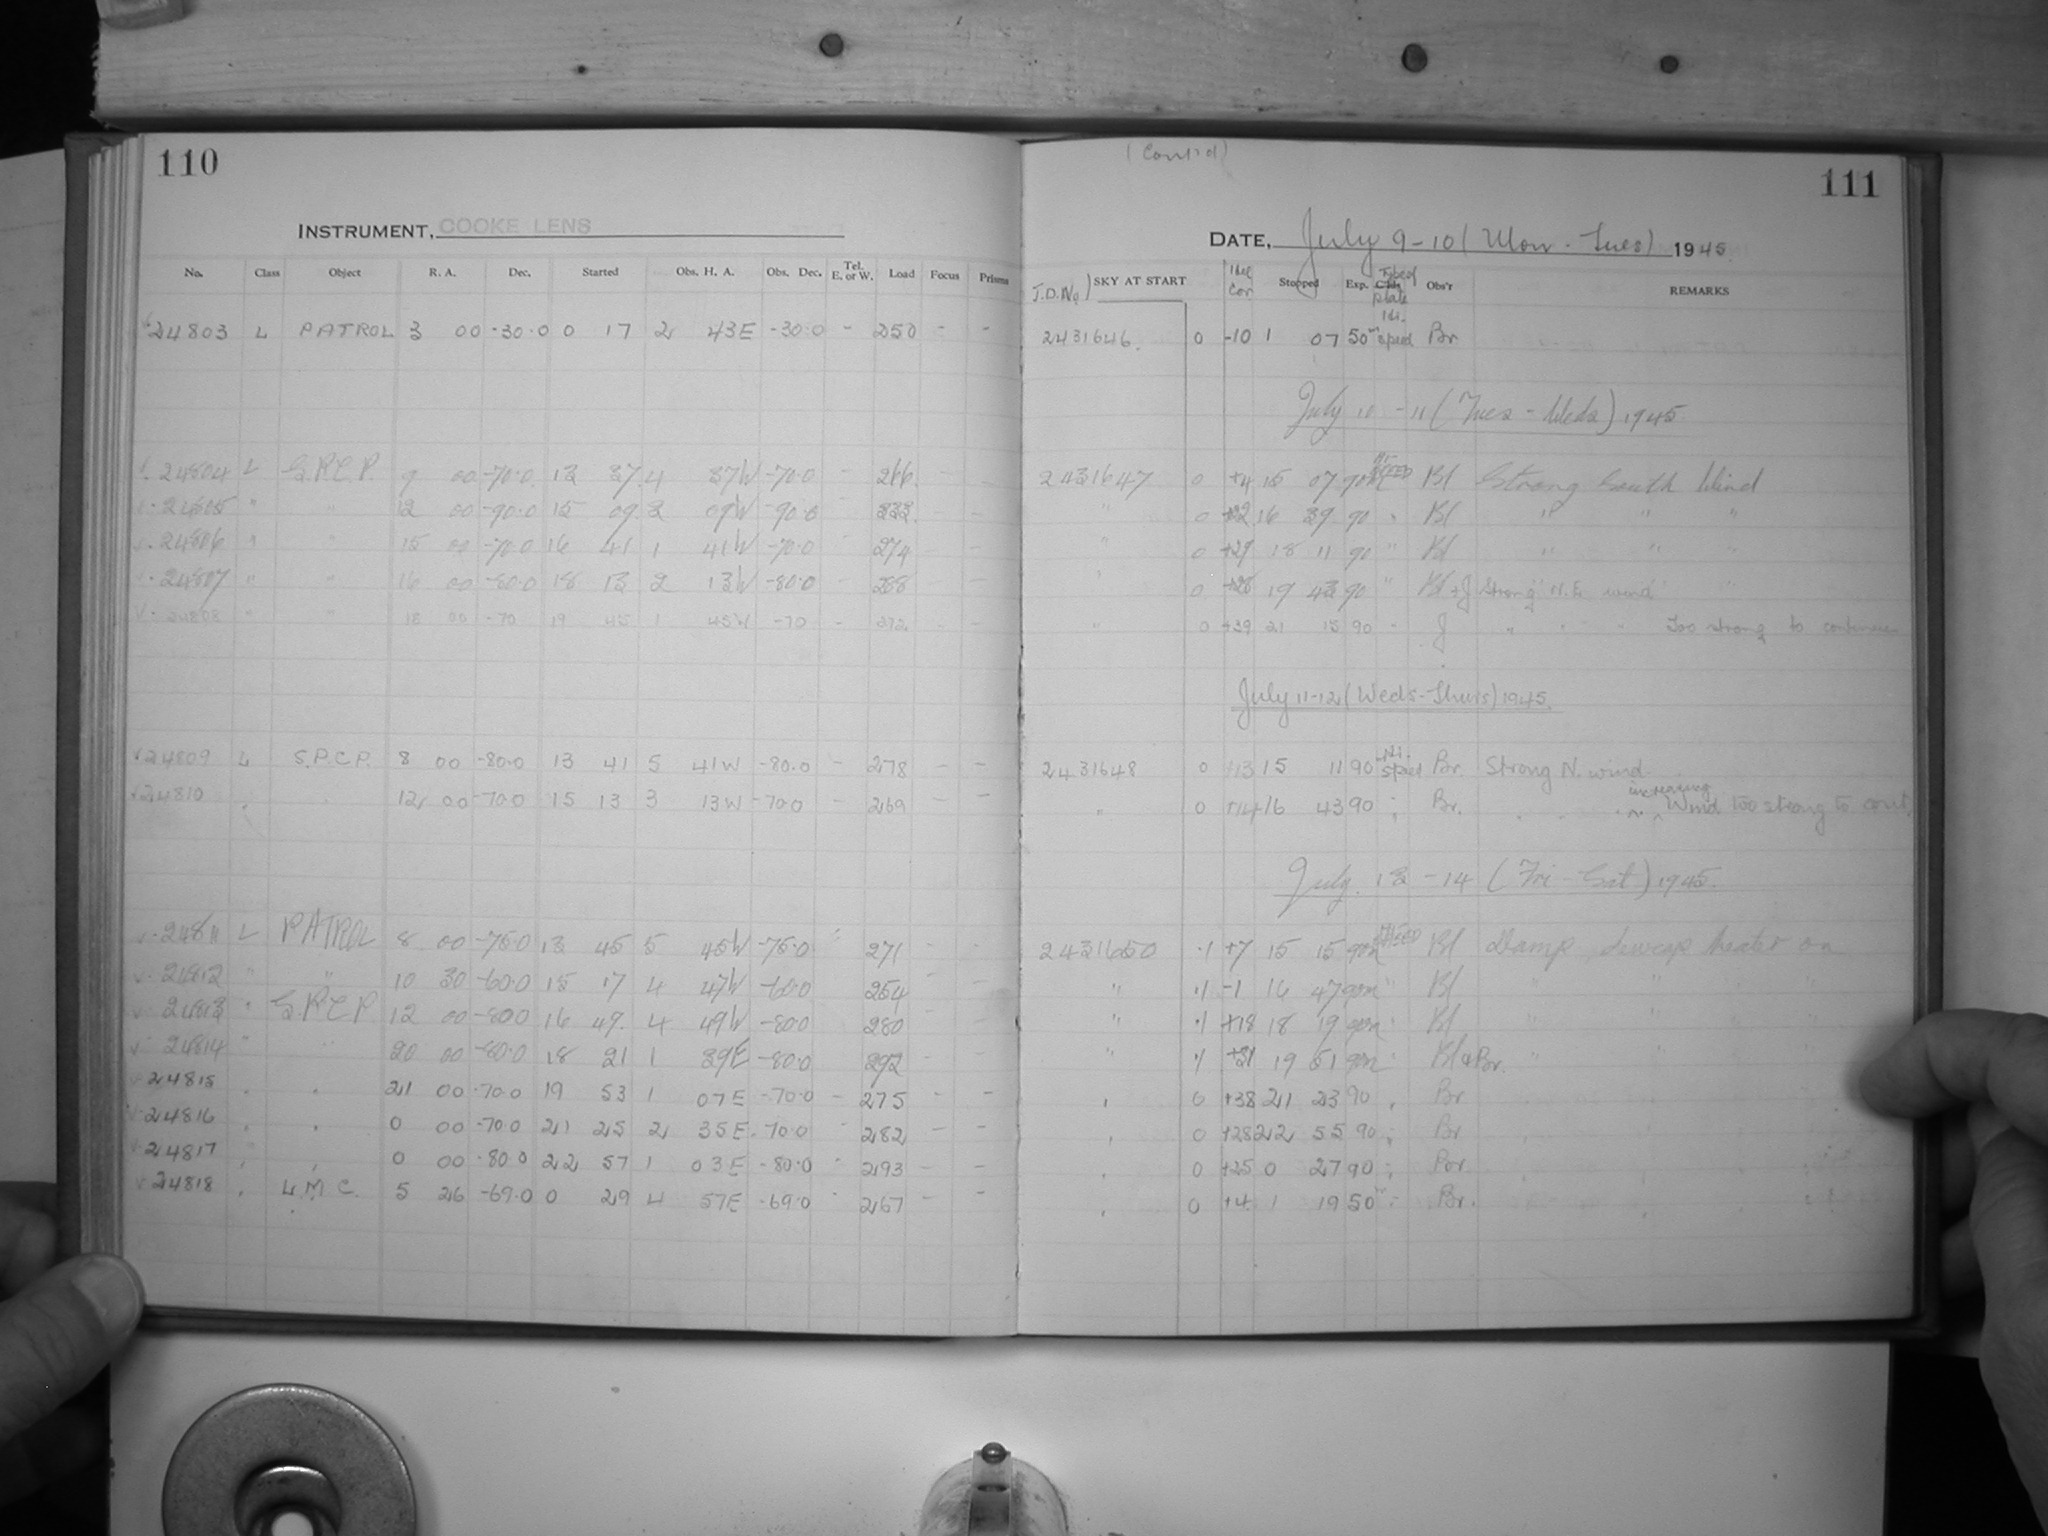 110
INSTRUMENT, COOKE LENS
No. Class Object R. A. Dec. Started Obs. H. A. Obs. Dec. Tel. E. or W. Load Focus Prisms
24803 L PATROL 3 00 -30.0 0 17 2 43E -30.0 - 250 - -
24804 L S.P.C.P. 9 00 -70.0 13 37 4 37W -70.0 - 266 -
24805 " " 12 00 -90.0 15 09 3 09W -90.0 - - -
24806 " " 15 00 -70.0 16 41 1 41W -70.0 - 274 - -
24807 " " 16 00 -80.0 18 13 2 13W -80.0 - 288 - -
24808 " " 18 00 -70 19 45 1 45W -70 - 272 - -
24809 L S.P.C.P. 8 00 -80.0 13 41 5 41W -80.0 - 278 - -
24810 " " 12 00 -70.0 15 13 3 13W -70.0 - 269 - -
24811 L PATROL 8 00 -75.0 13 45 5 45W -75.0 - 271 - -
24812 " " 10 30 -60.0 15 17 4 47W -60.0 254 - -
24813 " S.P.C.P. 12 00 -80.0 16 49 4 49W -80.0 280 - -
24814 " " 20 00 -80.0 18 21 1 39E -80.0 292 - -
24815 " " 21 00 -70.0 19 53 1 07E -70.0 - 275 - -
24816 " " 0 00 -70.0 21 25 2 35E -70.0 - 282 - -
24817 " " 0 00 -80.0 22 57 1 03E -80.0 - 293 - -
24818 " L.M.C. 5 26 -69.0 0 29 4 57E -69.0 - 267 - -
(Cont'd)
111
DATE, July 9-10 (Mon - Tues) 1945
J.D. No. SKY AT START Cor Stopped Exp. Type of Plate Obs'r REMARKS
2431646. 0 -10 1 07 50m Hi. Speed Br
July 10 - 11 (Tues - Weds) 1945
2431647 0 +4 15 07 90m Hi SPEED Bl Strong South Wind
" 0 16 39 90 " Bl " " "
" 0 +29 18 11 90 " Bl " " "
" 0 19 43 90 " Bl + J Strong N.E. wind
" 0 +39 21 15 90 " J " " " Too strong to continue
July 11-12 (Weds-Thurs) 1945.
2431648 0 +13 15 11 90m Hi. Speed Br. Strong N. wind
" 0 +14 16 43 90 " Br. " " " increasing Wind too strong to cont.
July 13 - 14 (Fri - Sat) 1945.
2431650 .1 +7 15 15 90m SPEED Bl Damp, dewcap heater on
" .1 -1 16 47 90m " Bl " " "
" .1 +18 18 19 90m " Bl " " "
" .1 +31 19 51 90m " Bl & Br. " " "
" 0 +38 21 23 90 " Br
" 0 +28 22 55 90 " Br
" 0 +25 0 27 90 " Br.
" 0 +4 1 19 50m " Br.